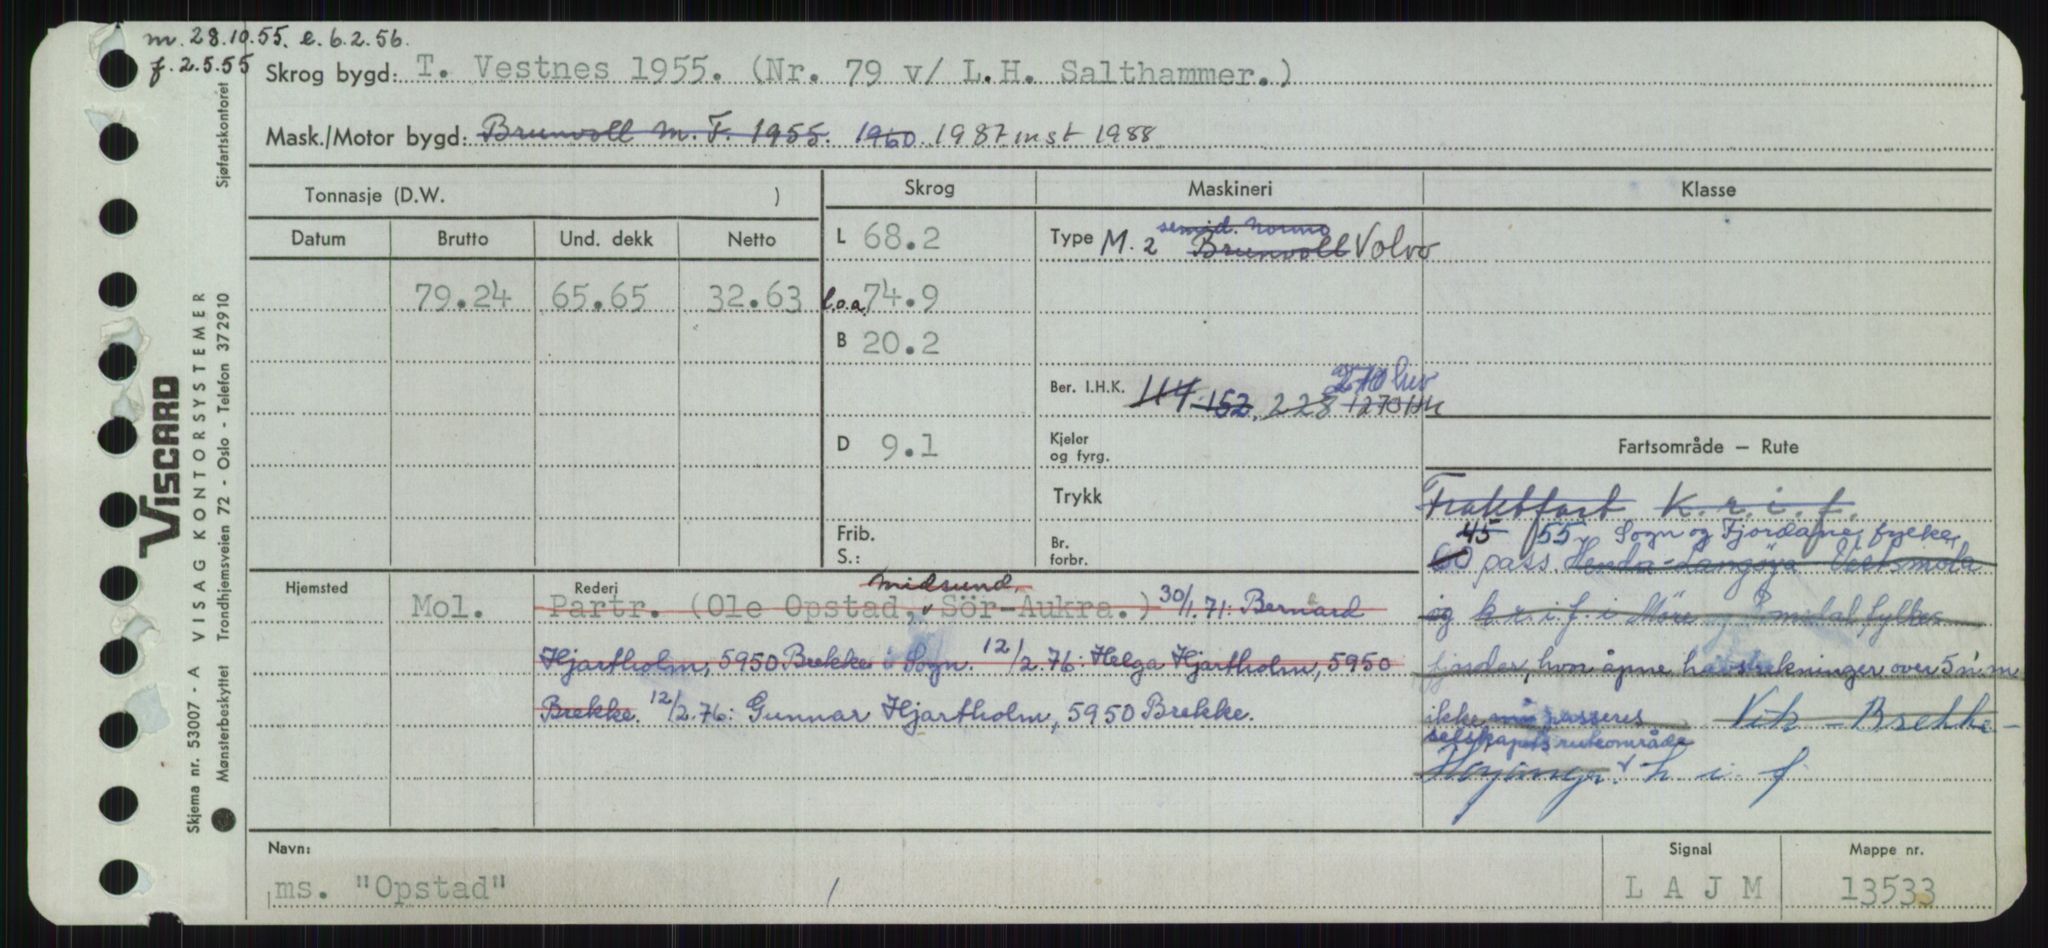 m. 28.10.55. e. 6.2.56.
f. 2.5.55
Skrog bygd: T. Vestnes 1955. (Nr. 79 v/ L.H. Salthammer.)
Mask./Motor bygd: Brunvoll M.F. 1955. 1960. 1987 inst 1988
Tonnasje (D.W. )
Skrog
Maskineri
Klasse
Datum Brutto Und. dekk Netto
L 68.2
semid. Normo
Type M. 2 Brunvoll Volvo
79.24 65.65 32.63
l.o.a. 74.9
B 20.2
270 hw
Ber. I.H.K. 114 152. 228
D 9.1
Kjeler og fyrg.
Fartsområde — Rute
Trykk
Fraktfart k.r.i.f.
Frib.
S.:
Br. forbr.
45 55 Sogn og Fjordane fylke,
60 pass Hendø-Langøya Vestsmøla
Hjemsted
Rederi
Midsund,
Mol. Partr. (Ole Opstad, Sör-Aukra.) 30/1.71: Bernard
og k.r.i.f. i Møre og Romsdal fylkes
Hjartholm, 5950 Brekke i Sogn. 12/2.76: Helga Hjartholm, 5950
fjorder, hvor åpne havstrekninger over 5 n.m
Brekke. 12/2.76: Gunnar Hjartholm, 5950 Brekke.
ikke må passeres Vik - Brekke -
selskapets ruteområde
Høyanger. k i f
Navn:
Signal
Mappe nr.
ms. "Opstad"
L A J M
13533
Sjøfartskontoret
VISCARD
Skjema nr. 53007 - A VISAG KONTORSYSTEMER
Mønsterbeskyttet Trondhjemsveien 72 - Oslo - Telefon 372910